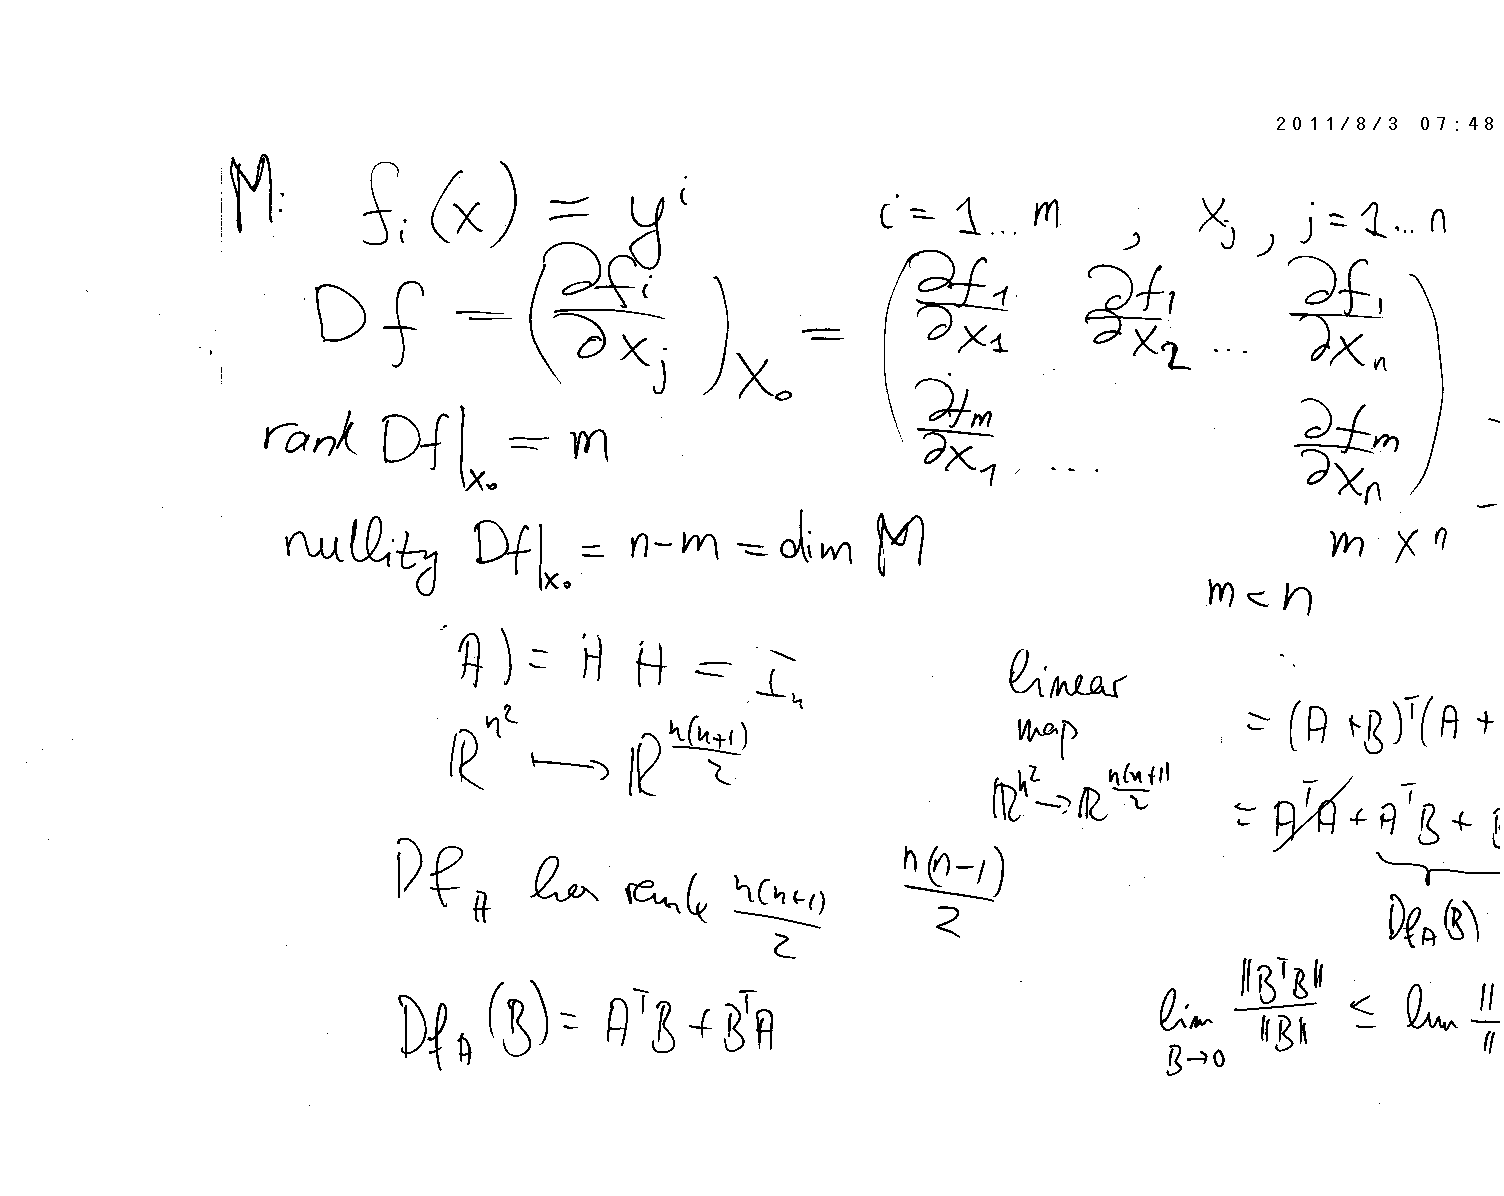 2011/8/3 07:48
M: f_i(x) = y^i    i = 1 ... m , x_j , j = 1 ... n
Df = (∂f_i/∂x_j)_{x_0} = ( ∂f_1/∂x_1  ∂f_1/∂x_2 ... ∂f_1/∂x_n
∂f_m/∂x_1 .... ∂f_m/∂x_n )
rank Df|_{x_0} = m
m × n
nullity Df|_{x_0} = n-m = dim M
m < n
A) = A A = I_n
ℝ^{n^2} ⟼ ℝ^{n(n+1)/2}
linear
map
ℝ^{n^2} → ℝ^{n(n+1)/2}
= (A+B)^T(A+
= A^T A + A^T B + B
Df_A(B)
Df_A has rank n(n+1)/2    n(n-1)/2
Df_A(B) = A^T B + B^T A
lim_{B→0} ‖B^T B‖/‖B‖ ≤ lim ‖/‖